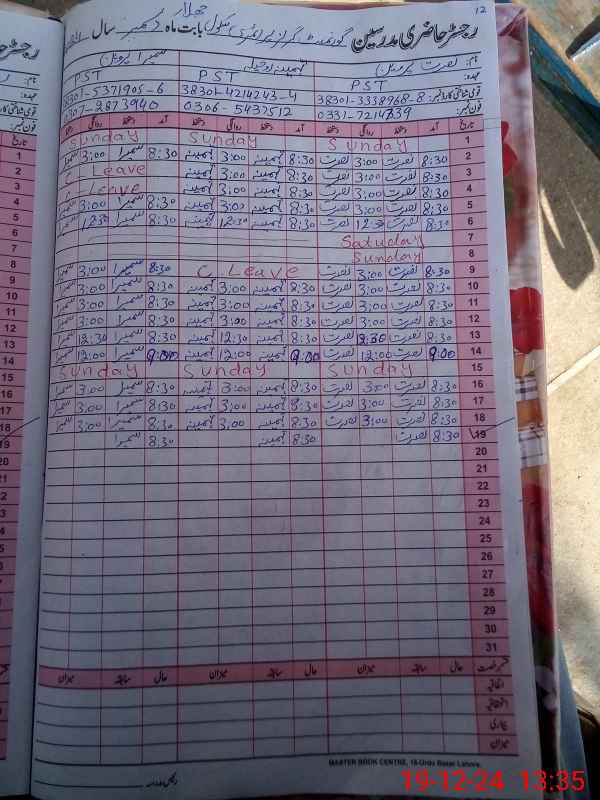 12
رجسٹر حاضری مدرسین گورنمنٹ گرلز پرائمری سکول بابت ماہ دسمبر سال
نام: نصرت پروین ثمینہ سمیرا پروین
عہدہ: PST PST PST
قومی شناختی کارڈ نمبر: 38301-3338968-8 38301-4214243-4 38301-5371905-6
فون نمبر: 0331-7214739 0306-5437512 0307-2873940
تاریخ آمد دستخط روانگی دستخط آمد دستخط روانگی دستخط آمد دستخط روانگی دستخط
1 Sunday Sunday Sunday
2 8:30 نصرت 3:00 نصرت 8:30 ثمینہ 3:00 ثمینہ 8:30 سمیرا 3:00 سمیرا
3 8:30 نصرت 3:00 نصرت 8:30 ثمینہ 3:00 ثمینہ C Leave
4 8:30 نصرت 3:00 نصرت 8:30 ثمینہ 3:00 ثمینہ C-Leave
5 8:30 نصرت 3:00 نصرت 8:30 ثمینہ 3:00 ثمینہ 8:30 سمیرا 3:00 سمیرا
6 8:30 نصرت 12:30 نصرت 8:30 ثمینہ 12:30 ثمینہ 8:30 سمیرا 12:30 سمیرا
7 Satuday
8 Sunday
9 8:30 نصرت 3:00 نصرت C Leave 8:30 سمیرا 3:00 سمیرا
10 8:30 نصرت 3:00 نصرت 8:30 ثمینہ 3:00 ثمینہ 8:30 سمیرا 3:00 سمیرا
11 8:30 نصرت 3:00 نصرت 8:30 ثمینہ 3:00 ثمینہ 8:30 سمیرا 3:00 سمیرا
12 8:30 نصرت 3:00 نصرت 8:30 ثمینہ 3:00 ثمینہ 8:30 سمیرا 3:00 سمیرا
13 8:30 نصرت 12:30 نصرت 8:30 ثمینہ 12:30 ثمینہ 8:30 سمیرا 12:30 سمیرا
14 9:00 نصرت 12:00 نصرت 9:00 ثمینہ 12:00 ثمینہ 9:00 سمیرا 12:00 سمیرا
15 Sunday Sunday Sunday
16 8:30 نصرت 3:00 نصرت 8:30 ثمینہ 3:00 ثمینہ 8:30 سمیرا 3:00 سمیرا
17 8:30 نصرت 3:00 نصرت 8:30 ثمینہ 3:00 ثمینہ 8:30 سمیرا 3:00 سمیرا
18 8:30 نصرت 3:00 نصرت 8:30 ثمینہ 3:00 ثمینہ 8:30 سمیرا 3:00 سمیرا
19 8:30 نصرت 8:30 ثمینہ 8:30 سمیرا
20
21
22
23
24
25
26
27
28
29
30
31
حال سابقہ میزان حال سابقہ میزان حال سابقہ میزان
اتفاقیہ
بیماری
میزان
MASTER BOOK CENTRE, 16-Urdu Bazar Lahore.
19-12-24 13:35